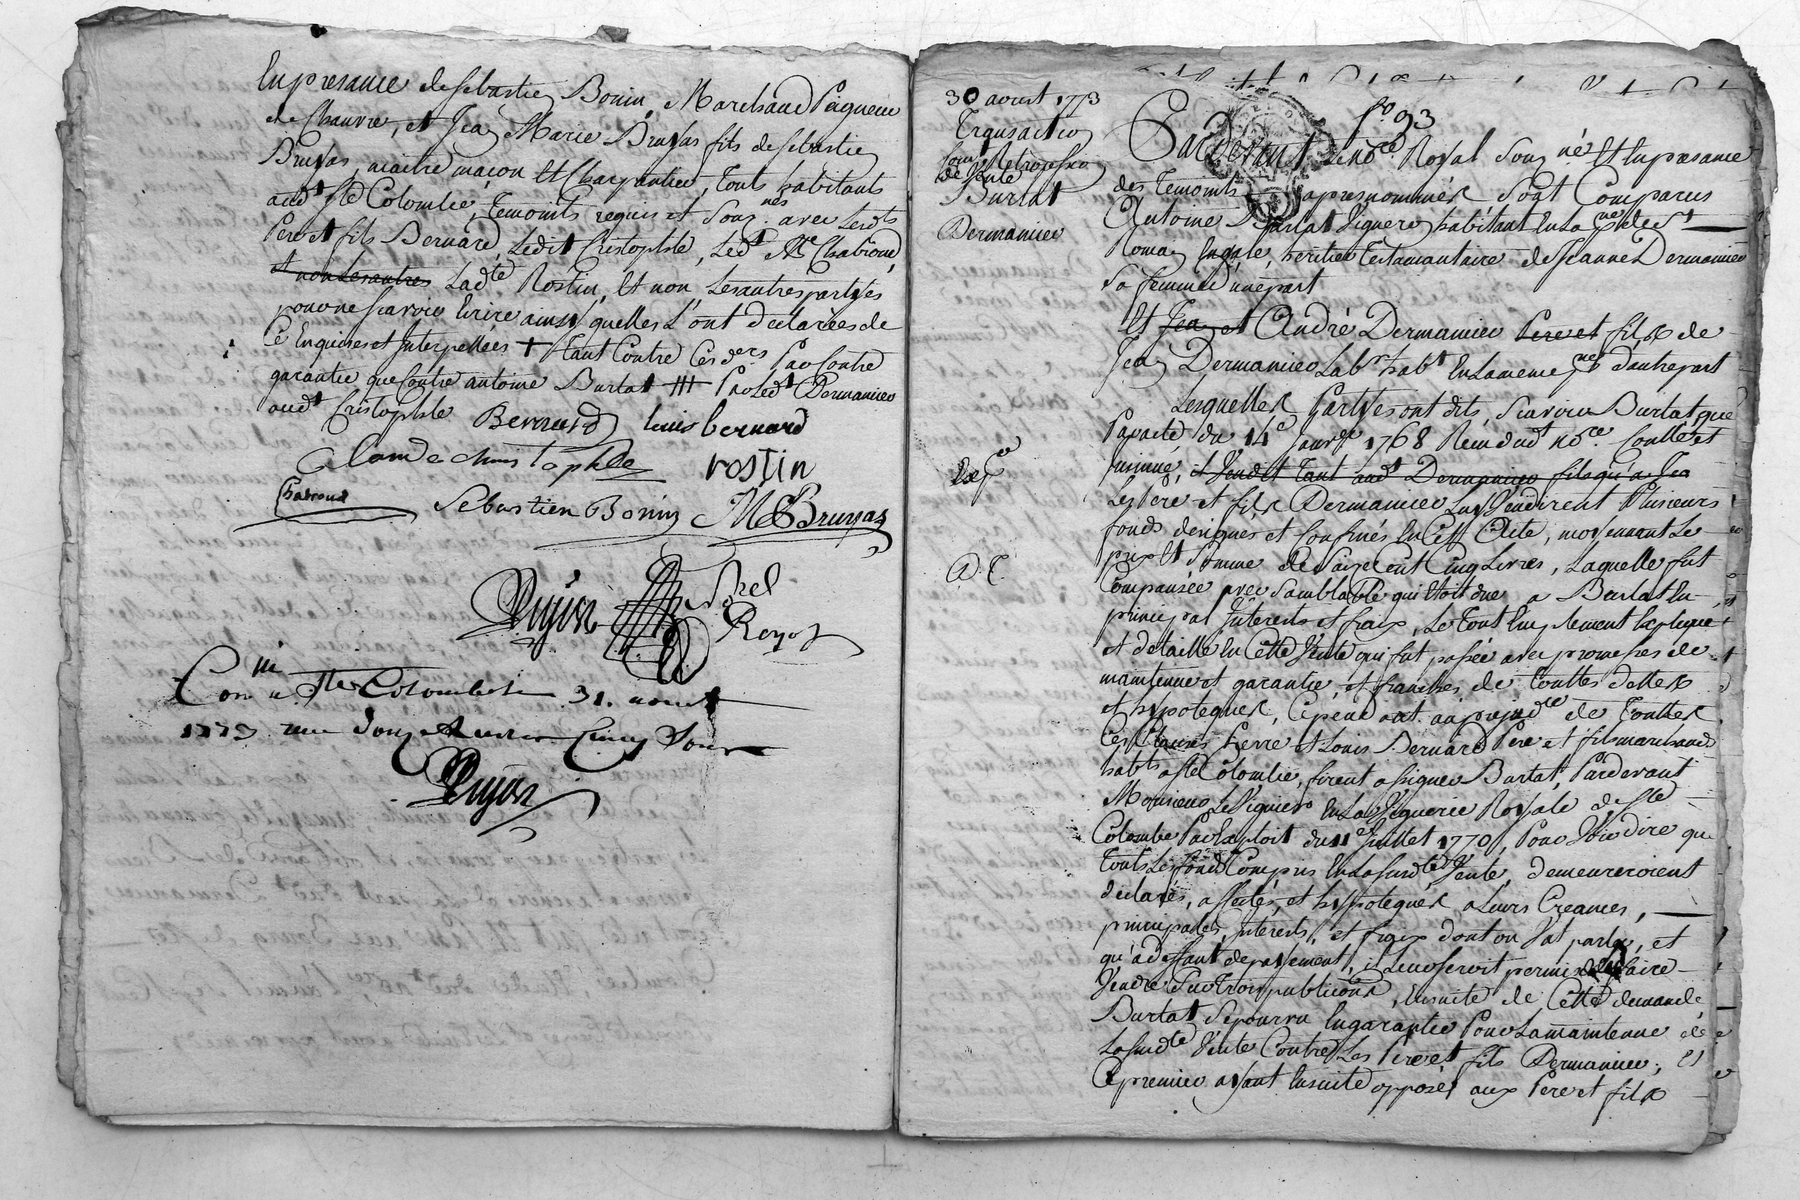 En presance de Sebastien Bonin, Marchand Peigneur
de Chanvre, et Jean Marie Bruyas fils de Sebastien
Bruyas, maitre maçon Et Charpantier, Touts habitants
aud.t Ste Colombe, Temoints requis et Souz.nés avec Lesdts
Pere et fils Bernard, Ledit Cristophle, Led.t Me Chabroud,
et non Les autres Ladte Rostin, Et non Les autres partyes
pour ne Scavoir Ecrire ainsy quelles L'ont declarées de
Ce Enquises et Interpellées + tant Contre Ces ders Par Contre
garantie que Contre antoine Burlat ++++ Par Led.t Dermanieu
aud.t Cristophle
Bernard louis bernard
Claude christophle rostin
Chabroud Sebastien Bonin JM Bruyas
Dujon
Com
Ste Colombe le 31. aoust
1773 reçu
Sous
Dujon
30 aoust 1773
Transaction
de Vente
Burlat
Dermanieu
Exp
fo 93
Pardevant Le Nore Royal Souz.né Et En presance
des Temoints apres nommés, Sont Comparus
Antoine Burlat Vigneron habitant En La
Romain Engale, heritier Testamantaire de Jeanne Dermanieu
Sa femme d'une part
Et Jean et André Dermanieu Pere et fils de
Jean Dermanieu Labr habt En La meme d'autre part
Lesquelles Partyes ont dits, Scavoir Burlat que
Par acte du 14e Janvier 1768 Reçu Nore. Controllé et
Insinué, et Vendit tant aud.t Dermanieu fils qu'a Jean
Les Pere et fils Dermanieu Luy Vendirent Plusieurs
fonds designés et Confinés En Cett Acte, moyenant Le
prix Et Somme de Seize Cent Cinq Livres, Laquelle fut
Compansée avec Samblable qui Etoit due a Burlat En
principal Interests et fraix, Le Tout Emplement Expliqué
et detaillé En Cette Vente qui fut passée avec promesses de
maintenue et garantie, et franches de Touttes dettes
et hypoteques, Cependant au prejudce de Touttes
Ces Clauses, Pierre et Louis Bernard Pere et fils marchands
habts a Ste Colombe, firent assigner Burlat, Pardevant
Monsieur Le Viguier En La Viguerie Royale de Ste
Colombe Par Exploit du 11e Juillet 1770, Pour Voir dire que
Touts Les fonds Compris En La Susdte Vente, demeureroient
declarés, affectés, et hypotequés a Leurs Creances,
principales, Interests, et fraix dont on Vat parler, et
qu'a deffaut de payement, il Leur Seroit permis de Les faire
Vendre Par Trois publications, Ensuite de Cette demande
Burlat Se pourvu En garantie Pour La maintenue de
La Susdte Vente Contre Les Pere et fils Dermanieu, Et
Ce premier ayant Ensuite opposé aux Pere et fils